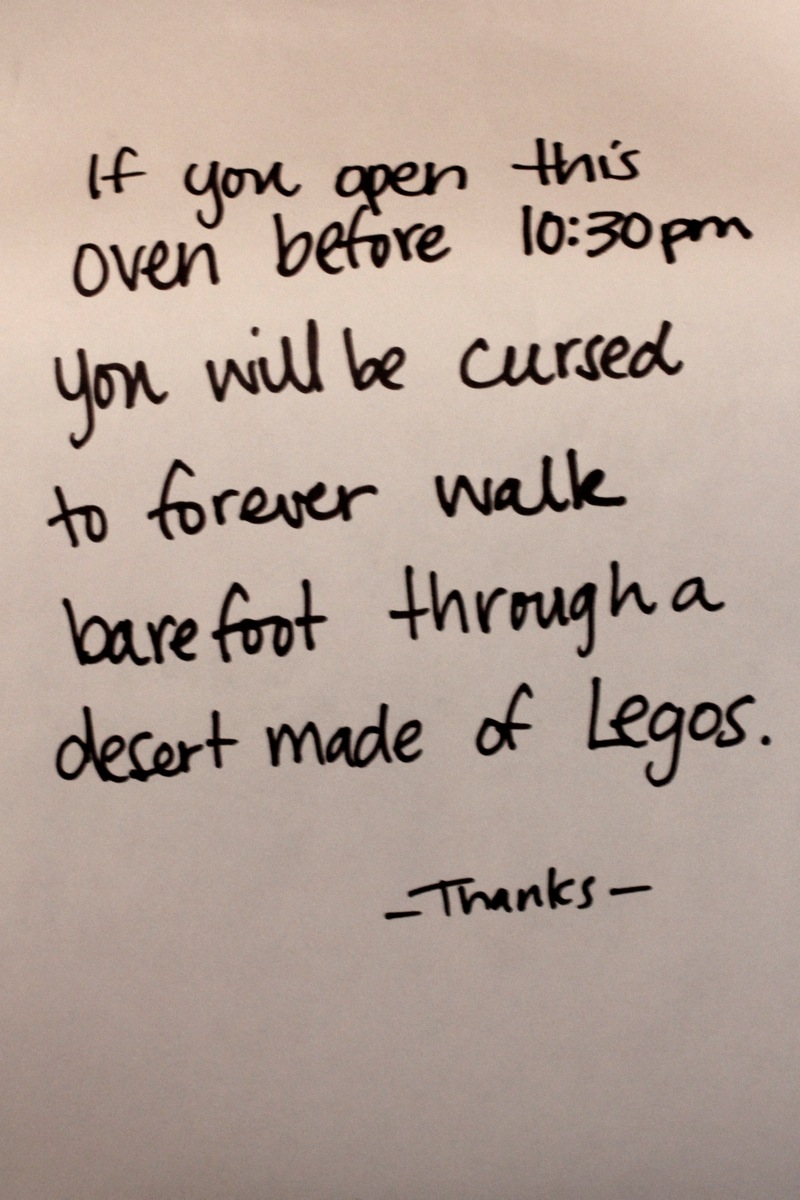 If you open this
oven before 10:30pm
you will be cursed
to forever walk
barefoot through a
desert made of Legos.
–Thanks–